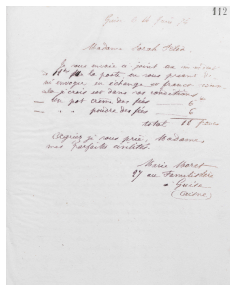 112
Guise, le
Madame Sarah Félix,
Je vous envoie ci joint un mandat
de la poste en vous priant de
m'envoyer en échange et franco comme
cela je crois est dans vos conditions
Un pot crème des fées 6
" " poudre des fées 6
total francs
Agréez je vous prie, Madame,
mes parfaites civilités
Marie Moret
27 au Familistère
Guise
(Aisne)